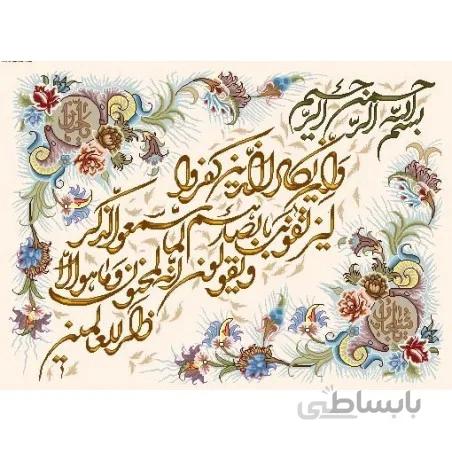 بسم الله الرحمن الرحیم
وان یکاد الذین کفروا
لیزلقونک بابصارهم لما سمعوا الذکر
ویقولون انه لمجنون وما هو الا
ذکر للعالمین
باباسطی